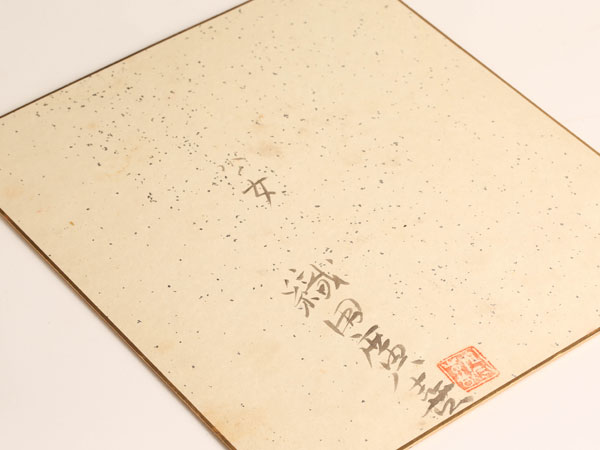 少女
織田廣喜